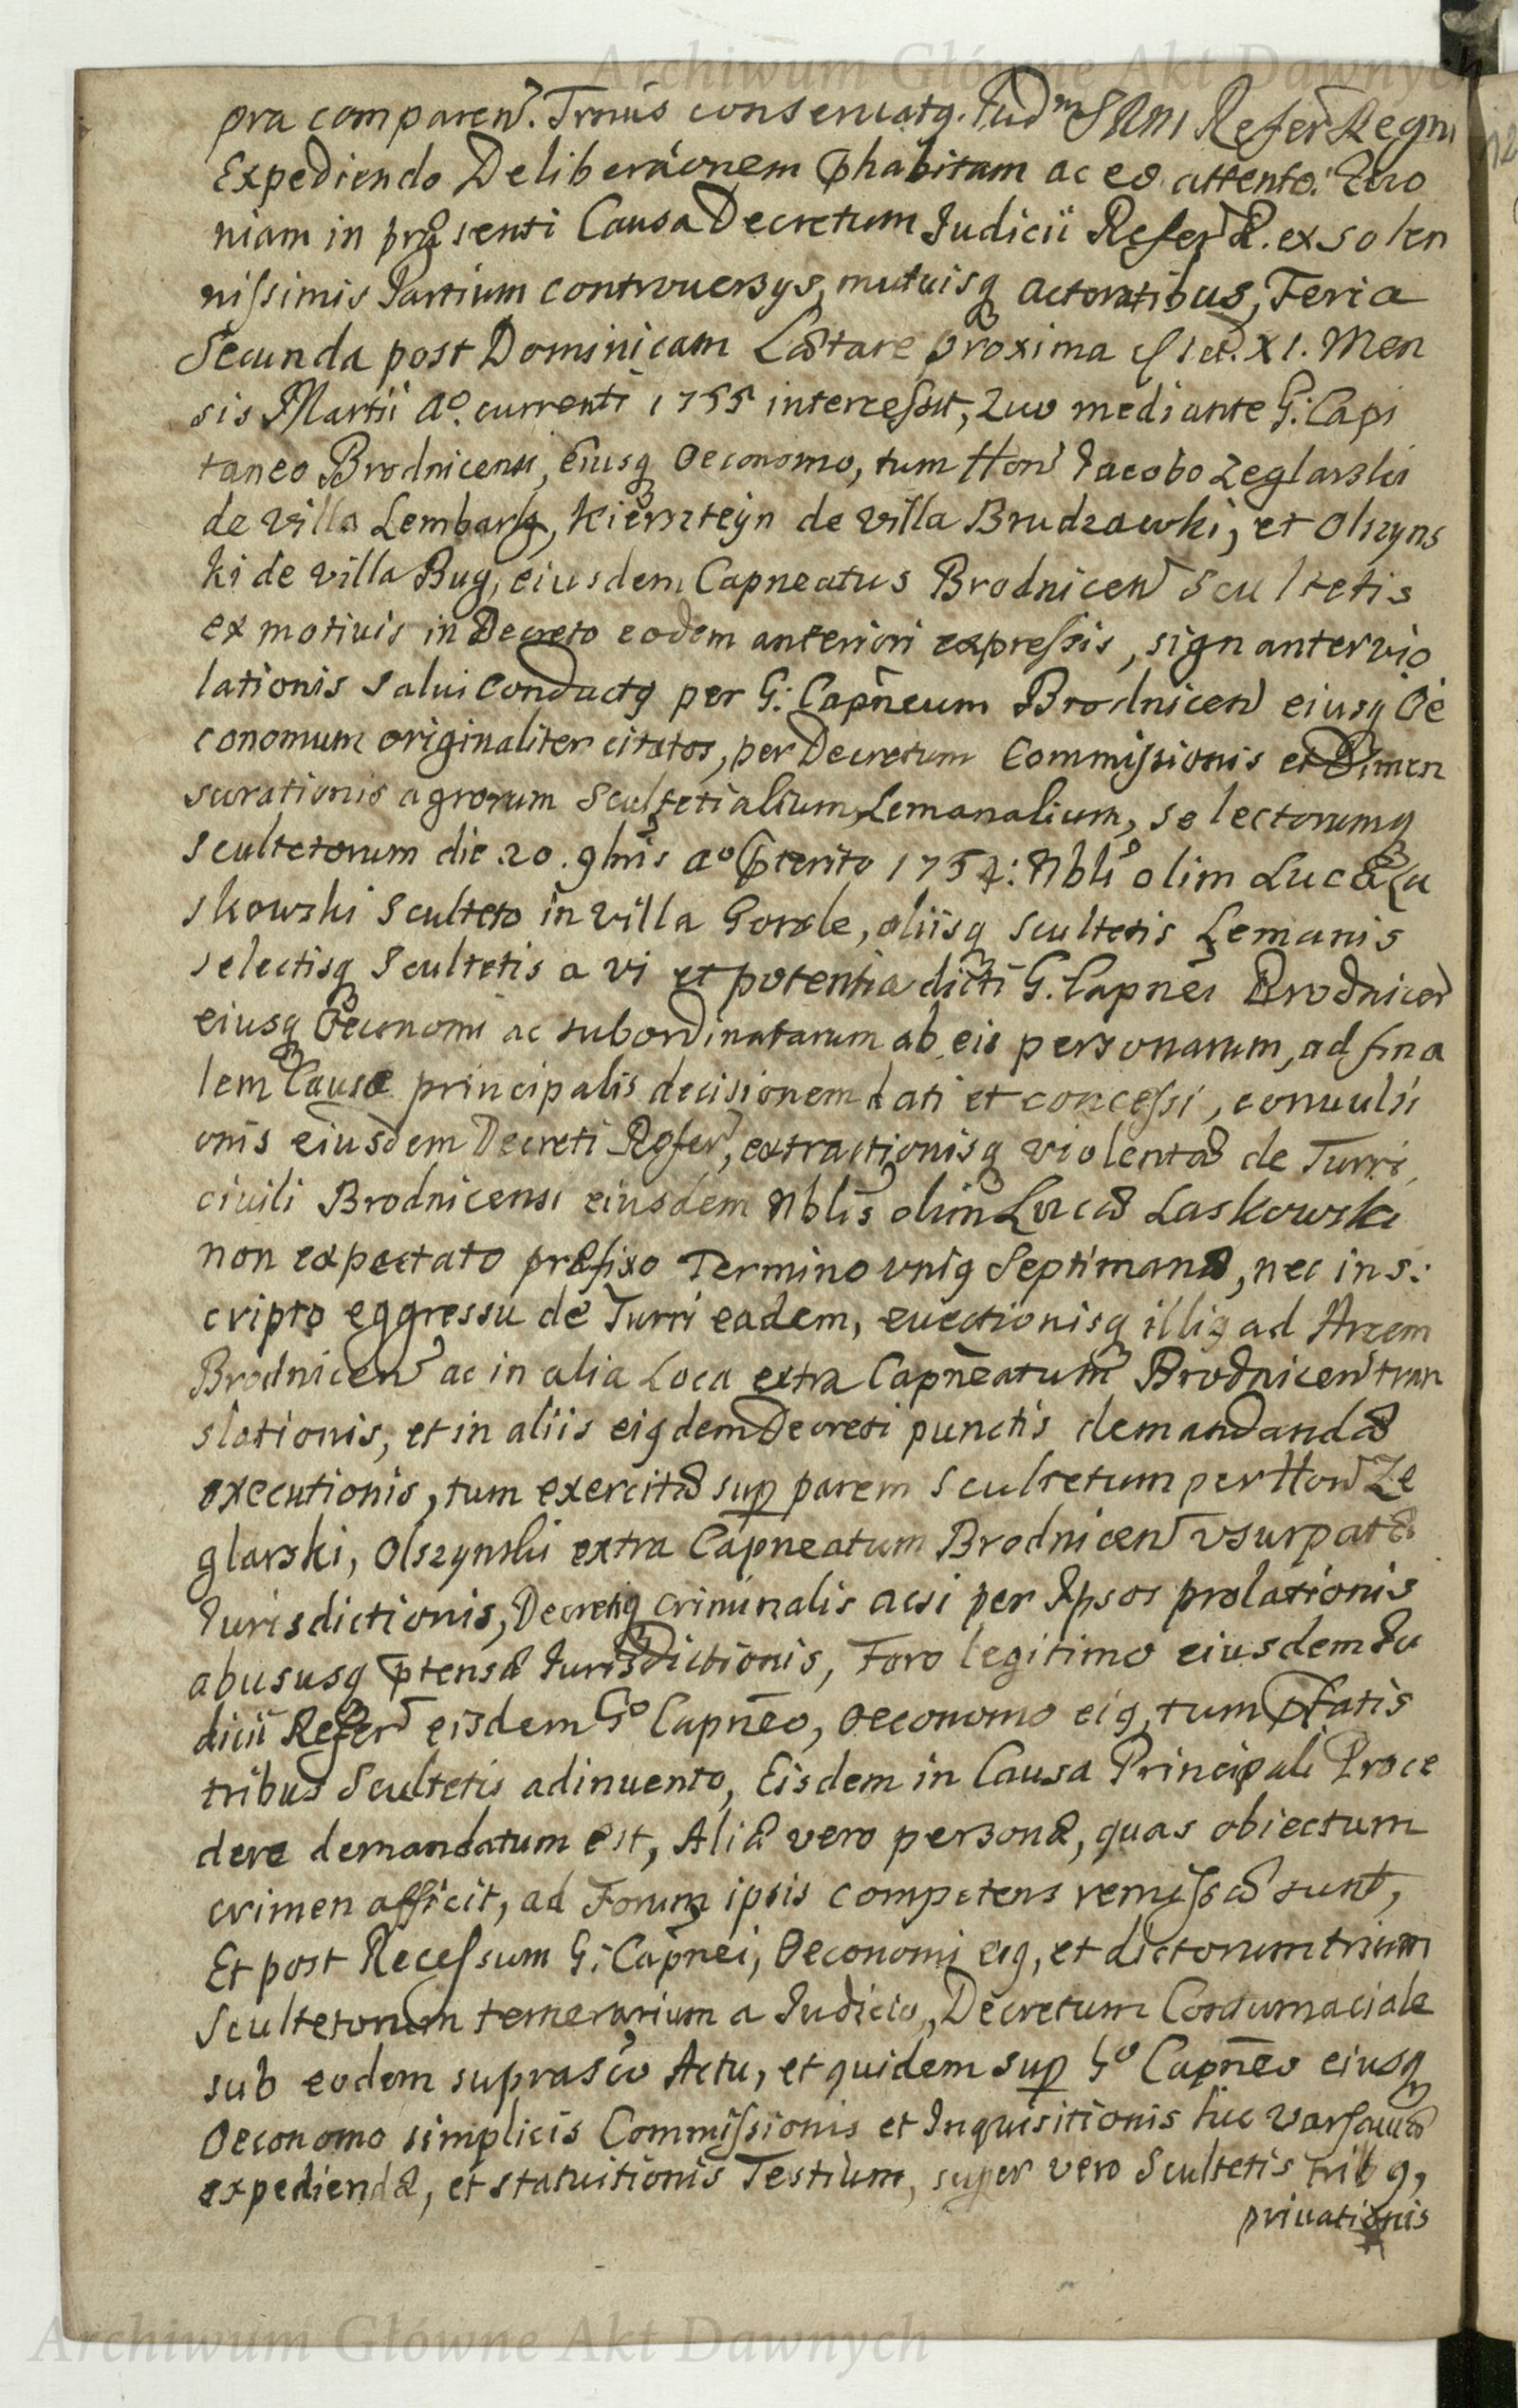 Archiwum Główne Akt Dawnych
pra comparen. Trnus conseruatq. Iud.m SRM Refer Regni
Expediendo Deliberaonem phabitam ac eo attento. Quo
niam in præsenti Causa Decretum Iudicii Refer R. ex solen
nissimis Partium controuersys, mutuisq actoratibus, Feria
Secunda post Dominicam Lætare proxima XI. Men
sis Martii Ao. currenti 1755 intercessit, Quo mediante G: Capi
taneo Brodnicensi, eiusq Oeconomo, tum Hon Iacobo Zeglarski
de villa Lembarg, Kierszteyn de villa Brudzawki, et Olszyns
ki de villa Bug, eiusdem Capneatus Brodnicen Scultetis
ex motiuis in Decreto eodem anteriori expressis, signanter vio
lationis salui Conductq per G: Capneum Brodnicen eiusq Oe
conomum originaliter citatos, per Decretum Commissionis et Dimen
surationis agrorum Scultetialium, Lemanalium, selectorumq
scultetorum die 20. 9bris ao pterito 1754: Nbli olim Lucæ La
skowski Sculteto in villa Gorale, aliisq scultetis Lemanis
selectisq Scultetis a vi et potentia dicti G. Capnei Brodnicen
eiusq Oeconomi ac subordinatarum ab eis personarum, ad fina
lem Causæ principalis decisionem dati et concessi, conuulsi
onis eiusdem Decreti Refer, extractionisq violentæ de Turri
ciuili Brodnicensi eiusdem Nblis olim Lucæ Laskowski
non expectato præfixo Termino vniq Septimanæ, nec ins:
cripto eggressu de Turri eadem, euectionisq illiq ad Arcem
Brodnicen ac in alia Loca extra Capneatum Brodnicen tran
slationis, et in aliis eiqdem Decreti punctis demandandæ
executionis, tum exercitæ sup parem Scultetum per Hon Ze
glarski, Olszynski extra Capneatum Brodnicen vsurpatæ
Iurisdictionis, Decretiq criminalis acsi per Ipsos prolationis
abususq ptensæ Iurisdictionis, Foro legitimo eiusdem Iu
dicii Refer eisdem Go Capneo, Oeconomo eiq, tum pfatis
tribus Scultetis adinuento, Eisdem in Causa Principali Proce
dere demandatum est, Aliæ vero personæ, quas obiectum
crimen afficit, ad Forum ipsis competens remissæ sunt,
Et post Recessum G: Capnei, Oeconomi eiq, et dictorum trium
Scultetorum temerarium a Iudicio, Decretum Contumaciale
sub eodem suprasco Actu, et quidem sup Go Capneo eiusq
Oeconomo simplicis Commissionis et Inquisitionis hic Varsauiæ
expediendæ, et statuitionis Testium, super vero Scultetis tribq,
priuationis
Archiwum Główne Akt Dawnych